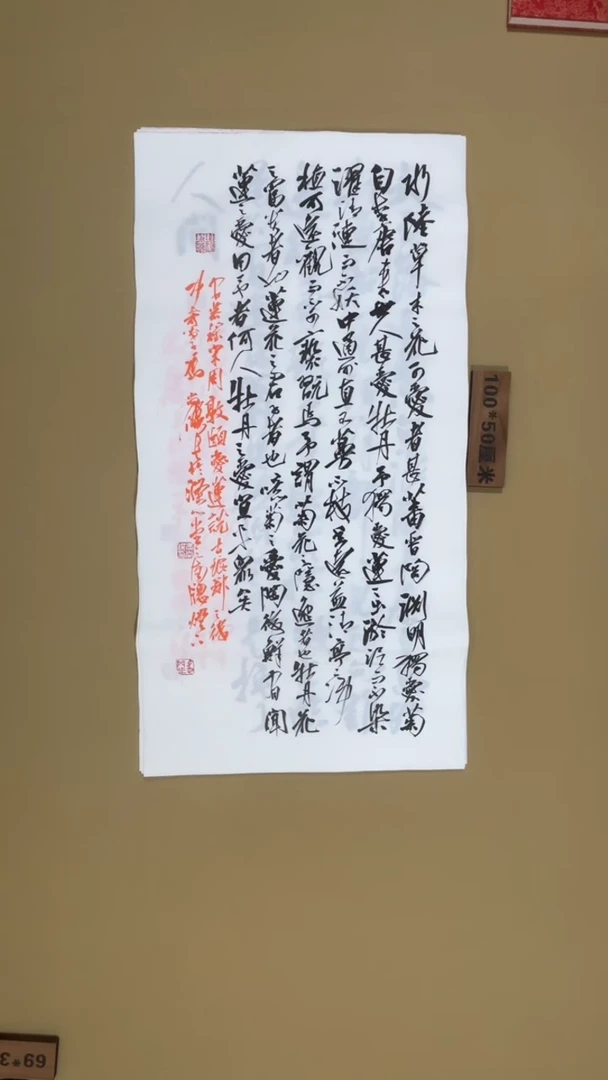 水陸草木之花可愛者甚蕃晉陶淵明獨愛菊
自李唐來世人甚愛牡丹予獨愛蓮之出淤泥而不染
濯清漣而不妖中通外直不蔓不枝香遠益清亭亭淨
植可遠觀而不可褻翫焉予謂菊花之隱逸者也牡丹花
之富貴者也蓮花之君子者也噫菊之愛陶後鮮有聞
蓮之愛同予者何人牡丹之愛宜乎眾矣
宋周敦頤愛蓮說
燈下
100*50厘米
69*3